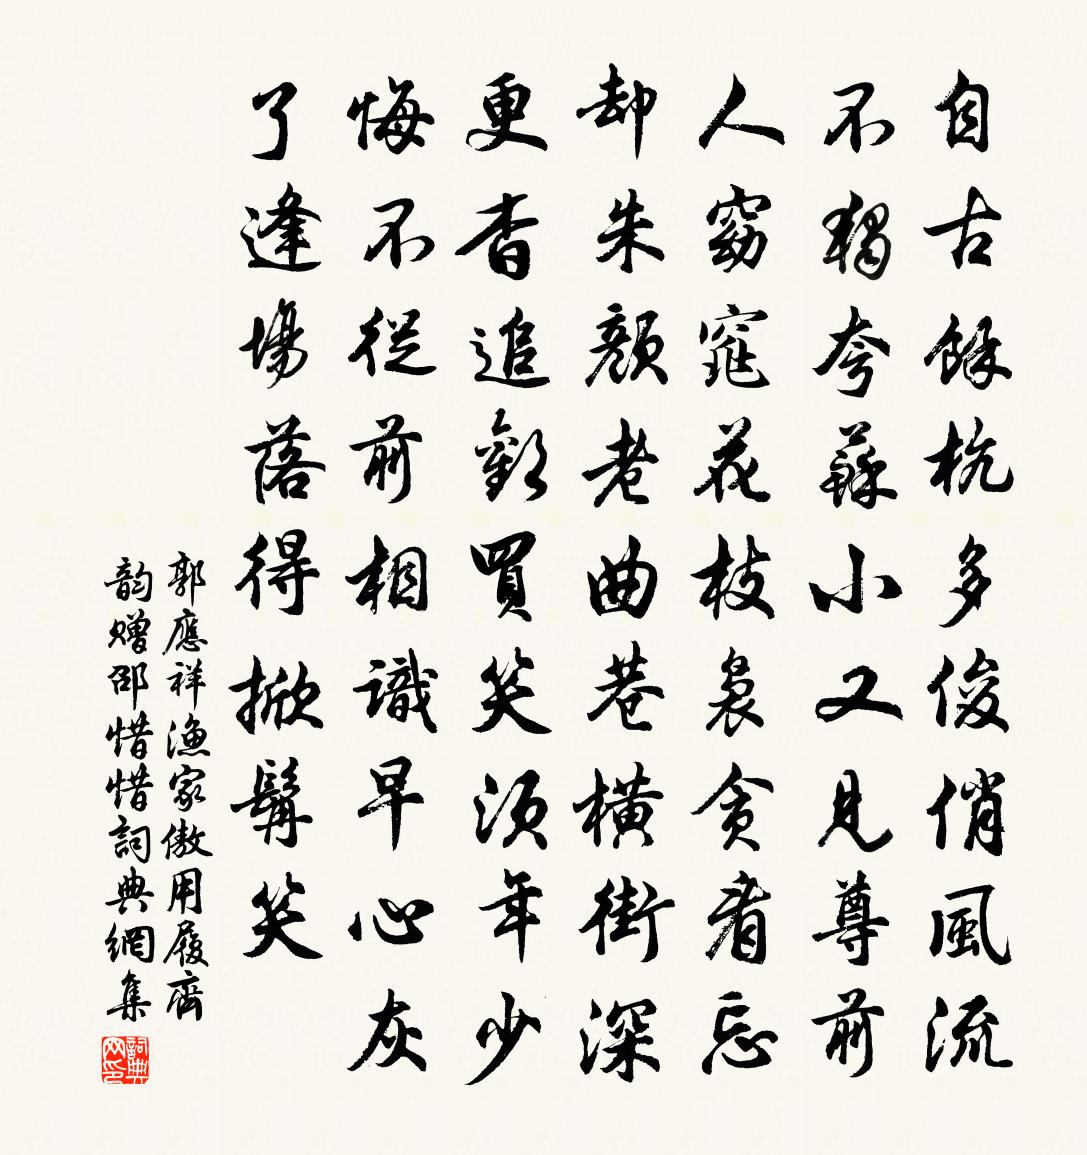 自古餘杭多俊俏風流
不獨夸蘇小又見尊前
人窈窕花枝裊貪看忘
却朱顏老曲巷橫街深
更杳追歡買笑須年少
悔不從前相識早心灰
了逢場落得掀髯笑
郭應祥漁家傲用履齊
韵贈邵惜惜詞典網集
詞典网印